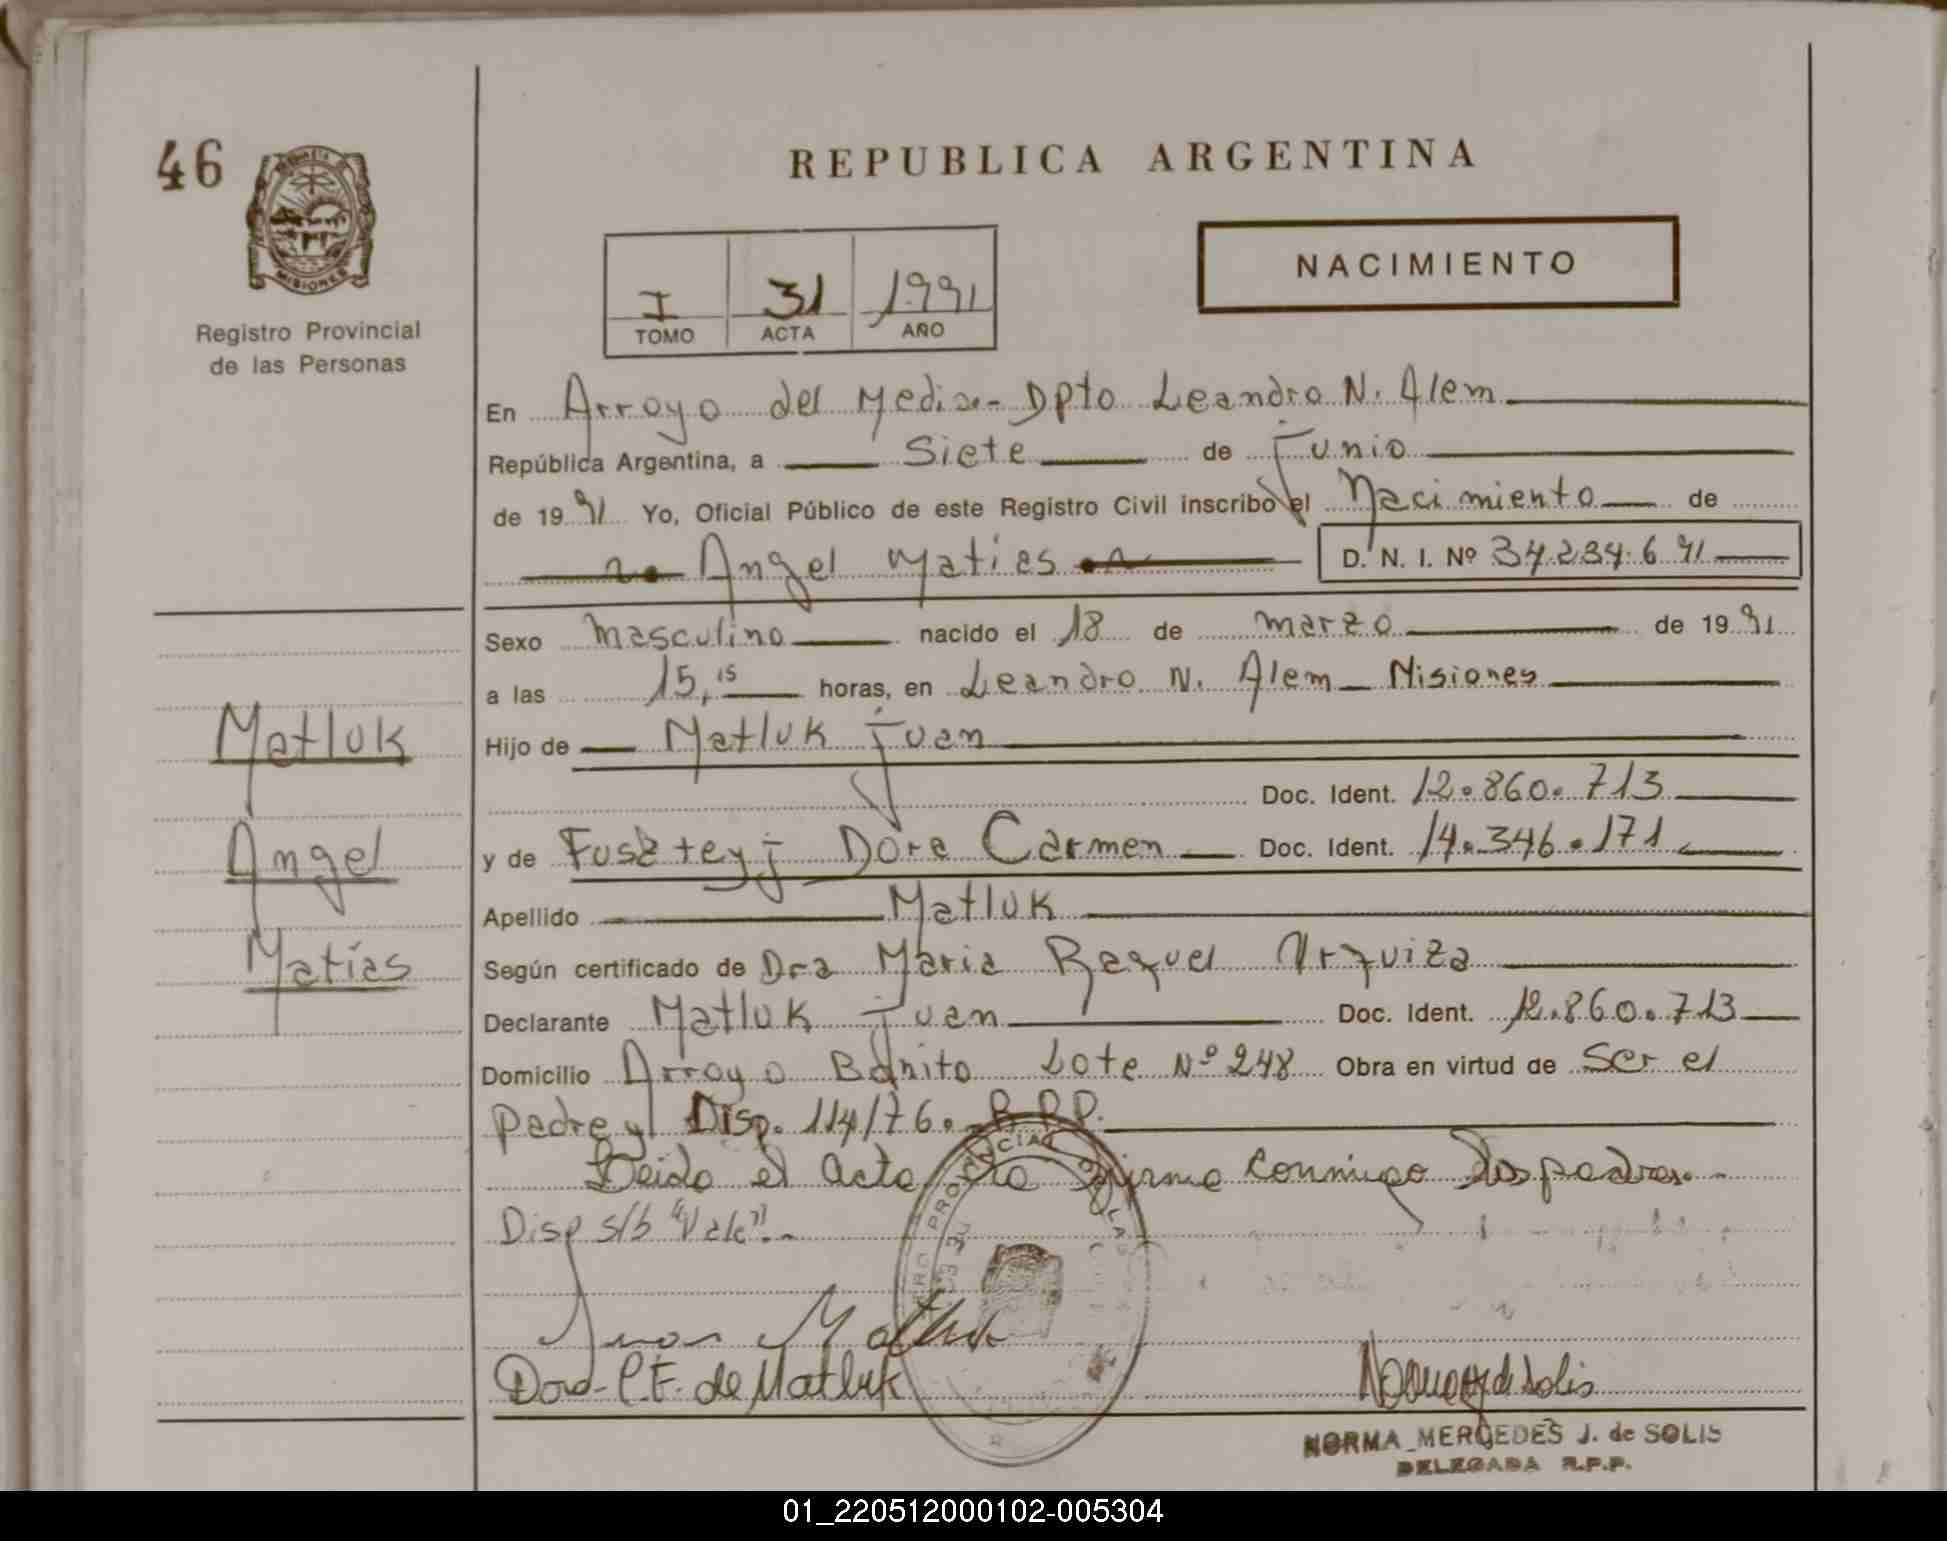 46
REPUBLICA ARGENTINA
MISIONES
Registro Provincial
de las Personas
I 31 1991
TOMO ACTA AÑO
NACIMIENTO
En Arroyo del Medio - Dpto Leandro N. Alem
República Argentina, a Siete de Junio
de 1991 Yo, Oficial Público de este Registro Civil inscribo el Nacimiento de
Angel Matias D. N. I. Nº 34.234.691
Sexo Masculino nacido el 18 de marzo de 1991
a las 15,15 horas, en Leandro N. Alem - Misiones
Hijo de Matluk Juan
Doc. Ident. 12.860.713
y de Dora Carmen Doc. Ident. 14.346.171
Apellido Matluk
Según certificado de Dra Maria Raquel Urquiza
Declarante Matluk Juan Doc. Ident. 12.860.713
Domicilio Arroyo Bonito Lote Nº 248 Obra en virtud de Ser el
padre y Disp. 114/76. R.P.P.
Leida el Acta la firma conmigo los padres.-
Disp s/b "Vale".-
Matluk
Angel
Matías
Juan Matluk
Dora C.F. de Matluk
NORMA MERCEDES J. de SOLIS
DELEGADA R.P.P.
01_220512000102-005304